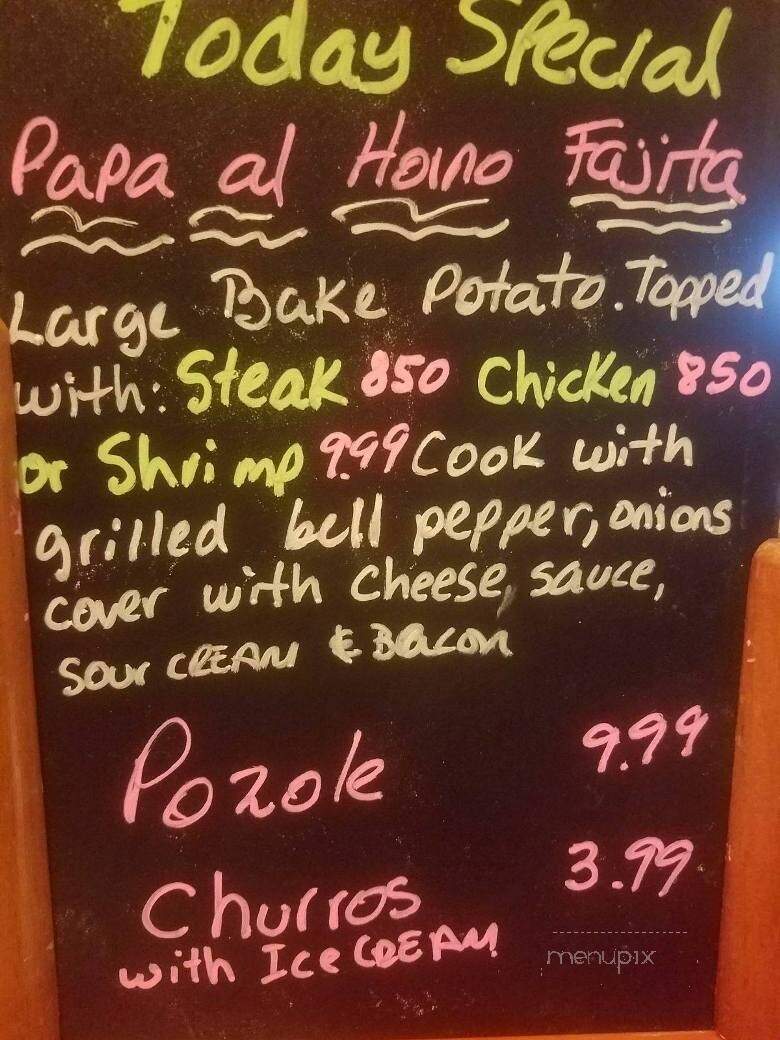 Today Special
Papa al Hoino Fajita
Large Bake Potato. Topped
with: Steak 850 Chicken 850
or Shrimp 9.99 Cook with
grilled bell pepper, onions
cover with cheese, sauce,
sour CREAM & Bacon
Pozole 9.99
Churros 3.99
with Ice CREAM
menupix